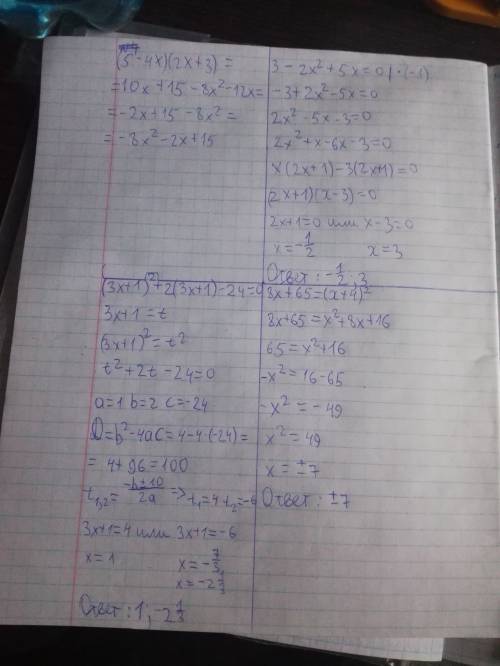 (5-4x)(2x+3)=
=10x+15-8x²-12x=
=-2x+15-8x²=
=-8x²-2x+15
3-2x²+5x=0|·(-1)
-3+2x²-5x=0
2x²-5x-3=0
2x²+x-6x-3=0
x(2x+1)-3(2x+1)=0
(2x+1)(x-3)=0
2x+1=0 или x-3=0
x=-1/2 x=3
Ответ: -1/2; 3
(3x+1)²+2(3x+1)-24=0
3x+1=t
(3x+1)²=t²
t²+2t-24=0
a=1 b=2 c=-24
D=b²-4ac=4-4·(-24)=
=4+96=100
t₁,₂=(-b±10)/2a => t₁=4 t₂=-6
3x+1=4 или 3x+1=-6
x=1 x=-7/3
x=-2 1/3
Ответ: 1; -2 1/3
8x+65=(x+4)²
8x+65=x²+8x+16
65=x²+16
-x²=16-65
-x²=-49
x²=49
x=±7
Ответ: ±7